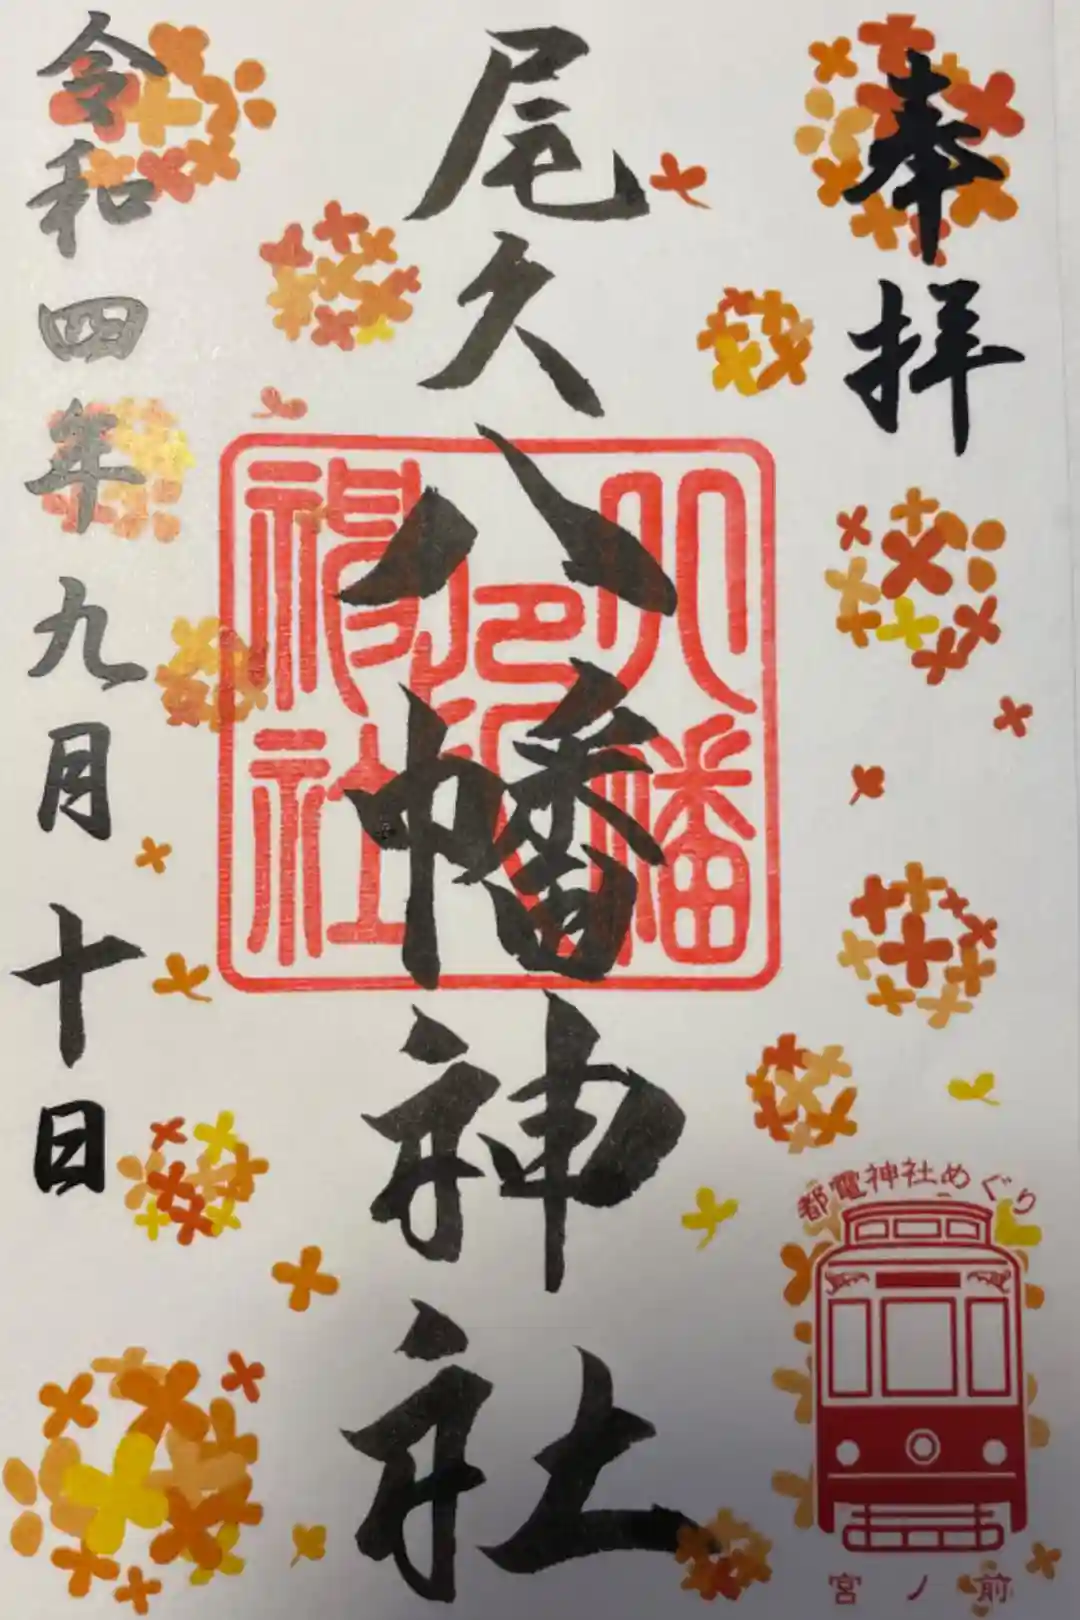 奉拝
尾久八幡神社
八幡
神社
令和四年九月十日
都電神社めぐり
宮ノ前